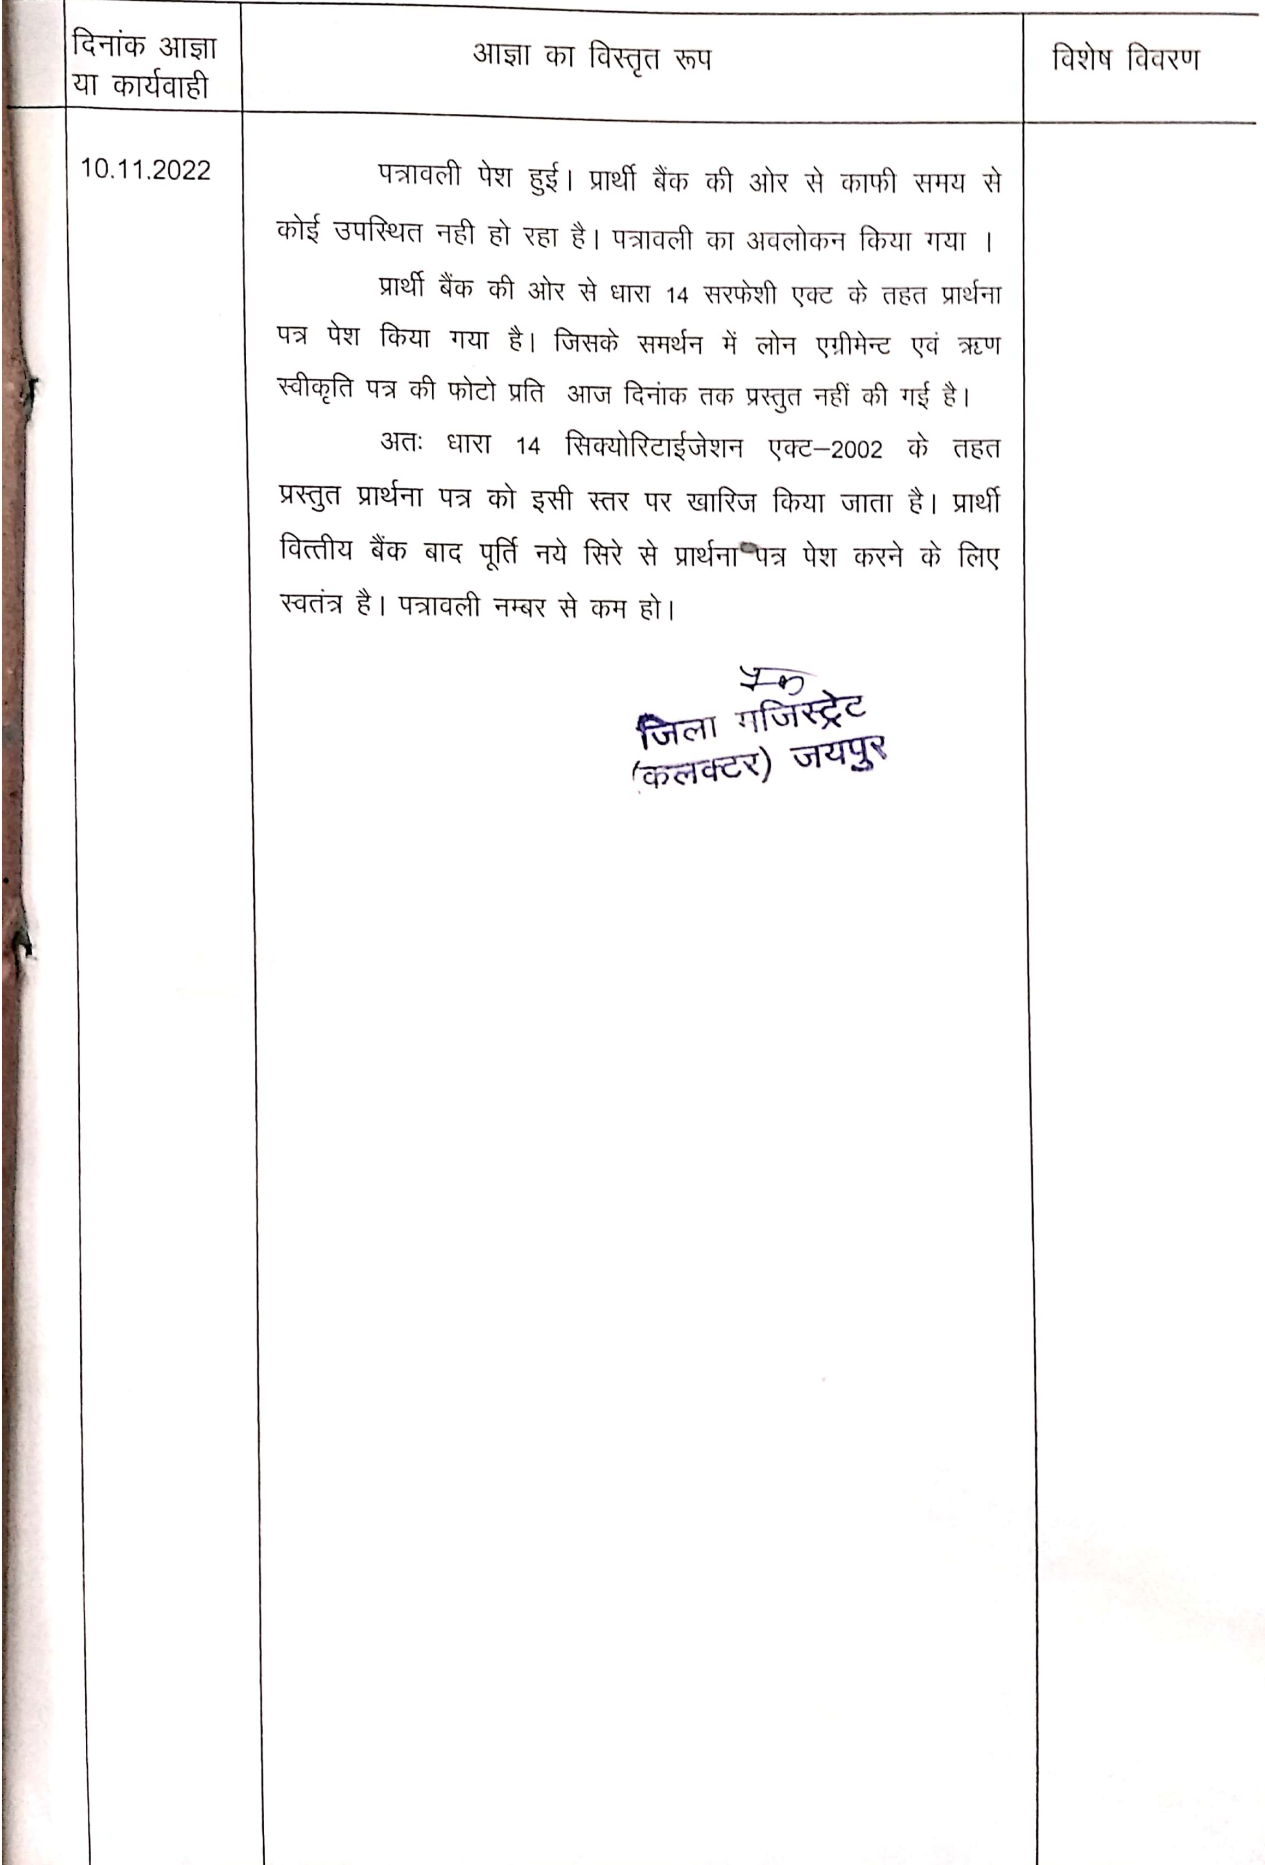 दिनांक आज्ञा
या कार्यवाही
आज्ञा का विस्तृत रूप
विशेष विवरण
10.11.2022
पत्रावली पेश हुई। प्रार्थी बैंक की ओर से काफी समय से
कोई उपस्थित नही हो रहा है। पत्रावली का अवलोकन किया गया ।
प्रार्थी बैंक की ओर से धारा 14 सरफेशी एक्ट के तहत प्रार्थना
पत्र पेश किया गया है। जिसके समर्थन में लोन एग्रीमेन्ट एवं ऋण
स्वीकृति पत्र की फोटो प्रति आज दिनांक तक प्रस्तुत नहीं की गई है।
अतः धारा 14 सिक्योरिटाईजेशन एक्ट–2002 के तहत
प्रस्तुत प्रार्थना पत्र को इसी स्तर पर खारिज किया जाता है। प्रार्थी
वित्तीय बैंक बाद पूर्ति नये सिरे से प्रार्थना पत्र पेश करने के लिए
स्वतंत्र है। पत्रावली नम्बर से कम हो।
जिला मजिस्ट्रेट
(कलक्टर) जयपुर